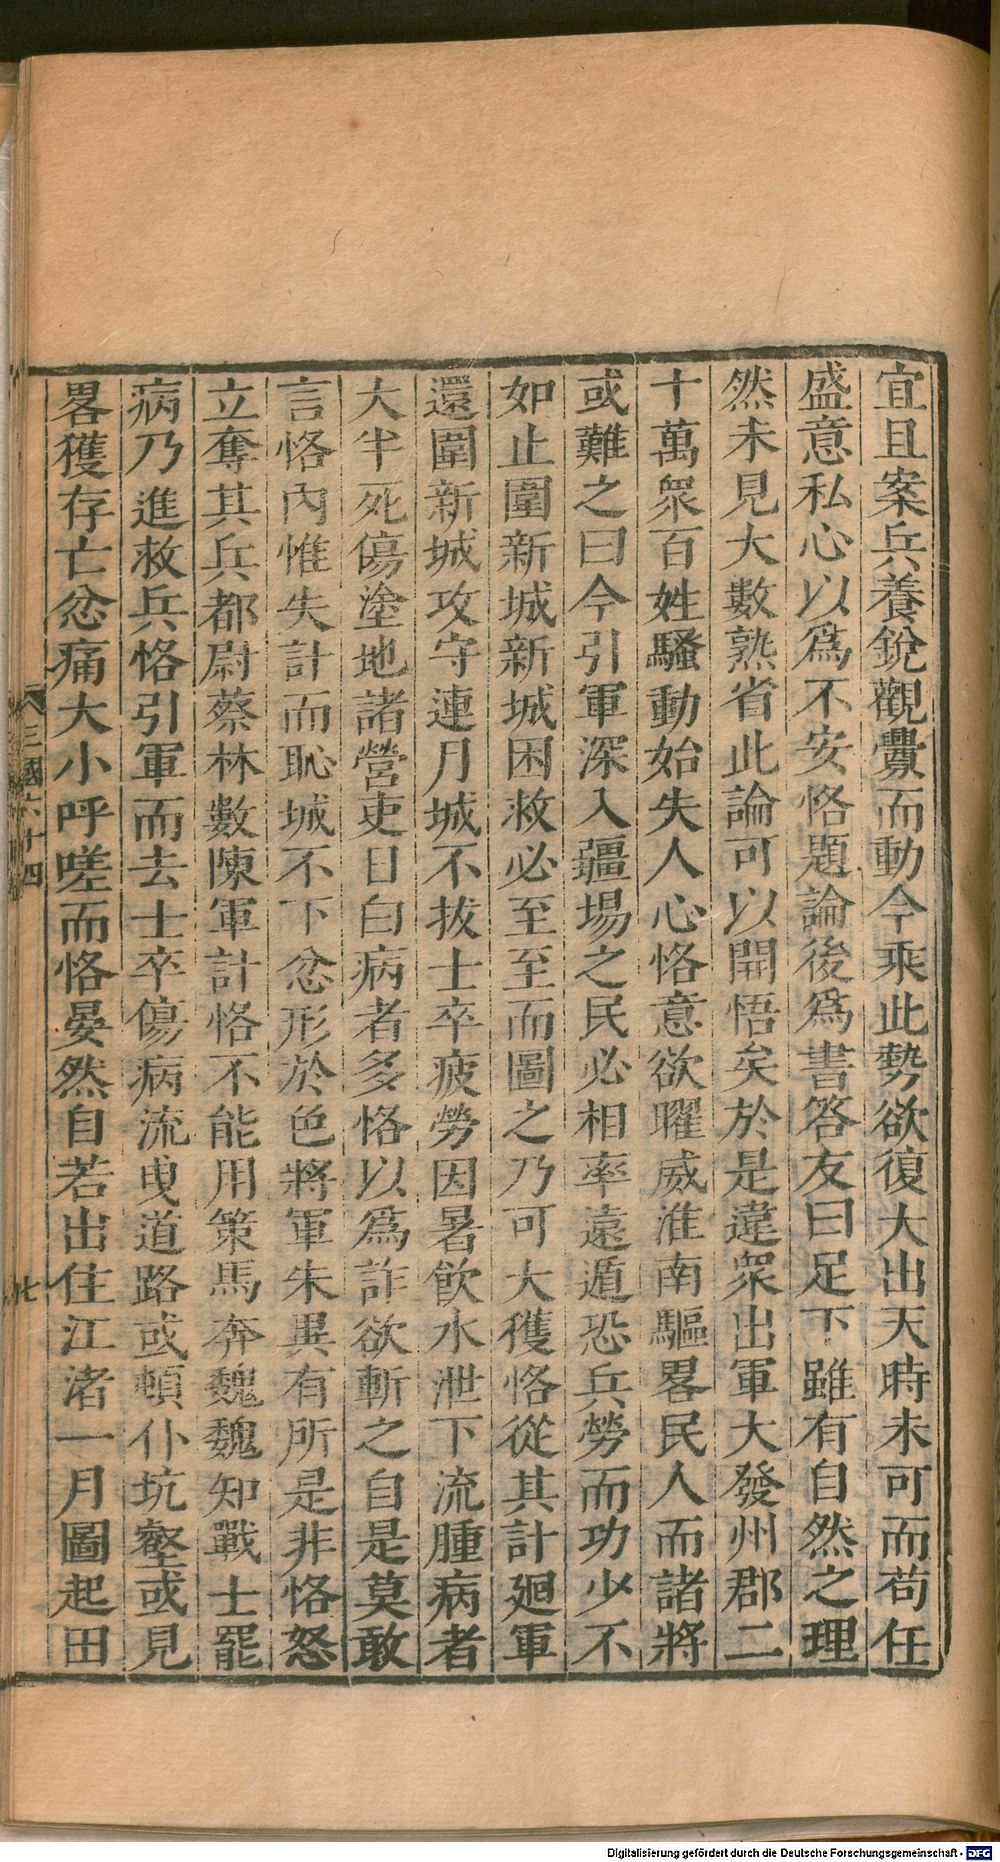 宜且案兵養銳觀釁而動今乘此勢欲復大出天時未可而苟任
盛意私心以爲不安恪題論後爲書答友曰足下雖有自然之理
然未見大數熟省此論可以開悟矣於是違衆出軍大發州郡二
十萬衆百姓騷動始失人心恪意欲曜威淮南驅畧民人而諸將
或難之曰今引軍深入疆場之民必相率遠遁恐兵勞而功少不
如止圍新城新城困救必至至而圖之乃可大獲恪從其計廻軍
還圍新城攻守連月城不拔士卒疲勞因暑飲水泄下流腫病者
大半死傷塗地諸營吏日白病者多恪以爲詐欲斬之自是莫敢
言恪內惟失計而恥城不下忿形於色將軍朱異有所是非恪怒
立奪其兵都尉蔡林數陳軍計恪不能用策馬奔魏魏知戰士罷
病乃進救兵恪引軍而去士卒傷病流曳道路或頓仆坑壑或見
畧獲存亡忿痛大小呼嗟而恪晏然自若出住江渚一月圖起田
三國六十四
七
Digitalisierung gefördert durch die Deutsche Forschungsgemeinschaft - DFG